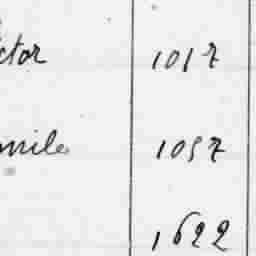 ctor 1017
mile 1057
1622